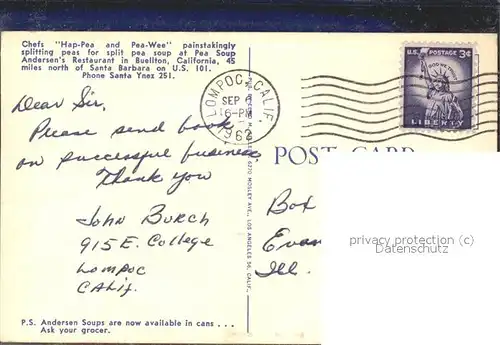 Chefs "Hap-Pea and Pea-Wee" painstakingly
splitting peas for split pea soup at Pea Soup
Andersen's Restaurant in Buellton, California, 45
miles north of Santa Barbara on U.S. 101.
Phone Santa Ynez 251.
Dear Sir,
Please send book
on successful business.
Thank you
John Burch
915 E. College
Lompoc
Calif.
P.S. Andersen Soups are now available in cans . . .
Ask your grocer.
LOMPOC, CALIF.
SEP
6-PM
1962
U.S. POSTAGE 3¢
IN GOD WE TRUST
LIBERTY
POST CARD
6270 MOSLEY AVE., LOS ANGELES 56, CALIF.
Box
Evan
Ill.
privacy protection (c)
Datenschutz